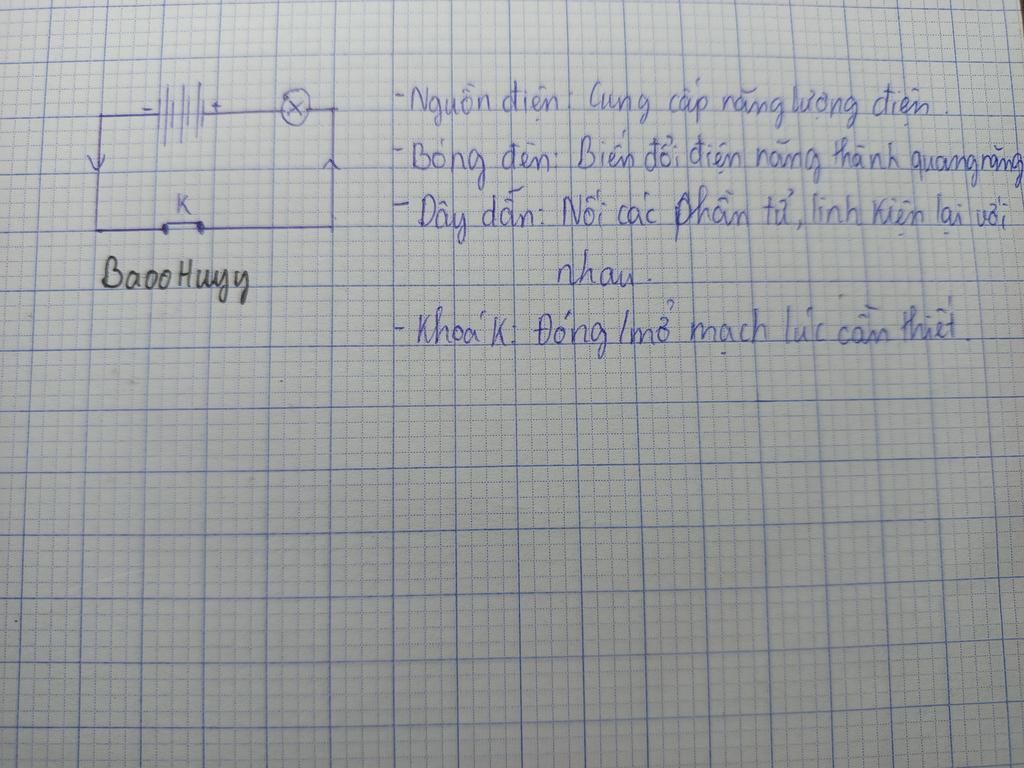 - +
K
BaooHuyy
- Nguồn điện: Cung cấp năng lượng điện.
- Bóng đèn: Biến đổi điện năng thành quang năng
- Dây dẫn: Nối các phần tử, linh kiện lại với
nhau.
- Khoá K: Đóng/mở mạch lúc cần thiết.